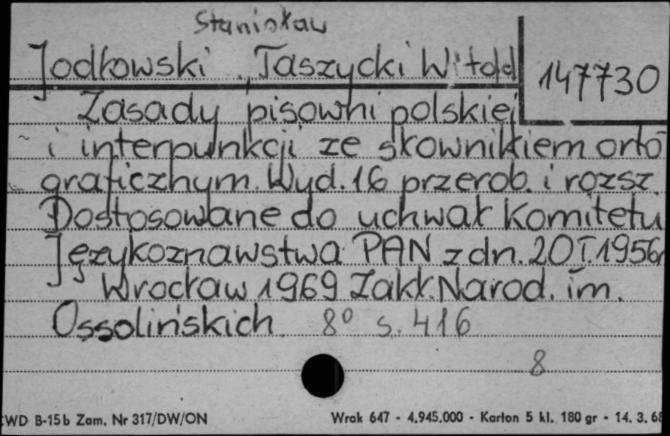 Stanisław
Jodłowski, Taszycki Witold
147730
Zasady pisowni polskiej
i interpunkcji ze słownikiem orto
graficznym. Wyd. 16 przerob. i rozsz.
Dostosowane do uchwał Komitetu
Językoznawstwa PAN z dn. 20 I. 1956r
Wrocław 1969 Zakł. Narod. im.
Ossolińskich 8° s. 416
8
WD B-15b Zam. Nr 317/DW/ON
Wrak 647 - 4.945.000 - Karton 5 kl. 180 gr - 14. 3. 68